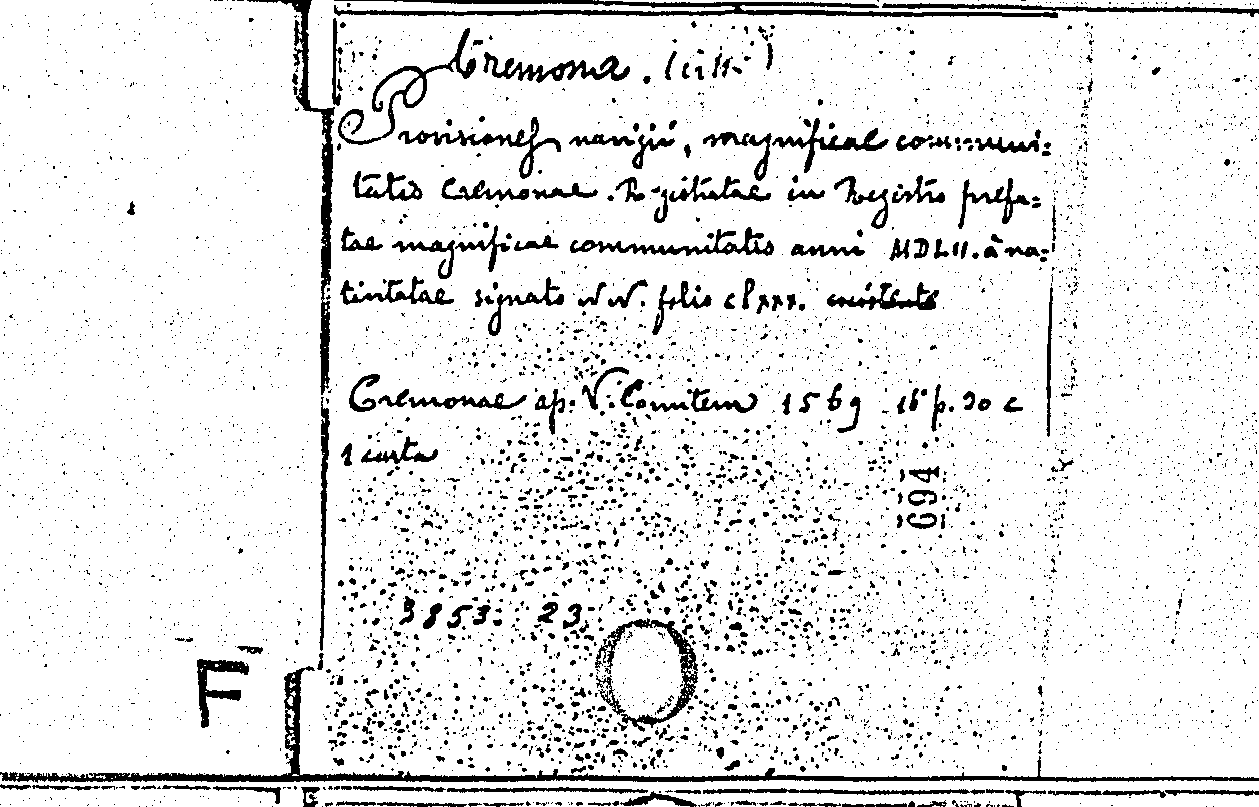 Cremona. (città)
Provisiones navigii, magnificae communi=
tatis Cremonae. Registratae in Registro prefa=
tae magnificae communitatis anni MDLII. à na=
tivitatae signato NN. folio clxxx.
Cremonae ap. V. Comitem 1569 16° p. 30 c
1 carta
694
3853. 23
F